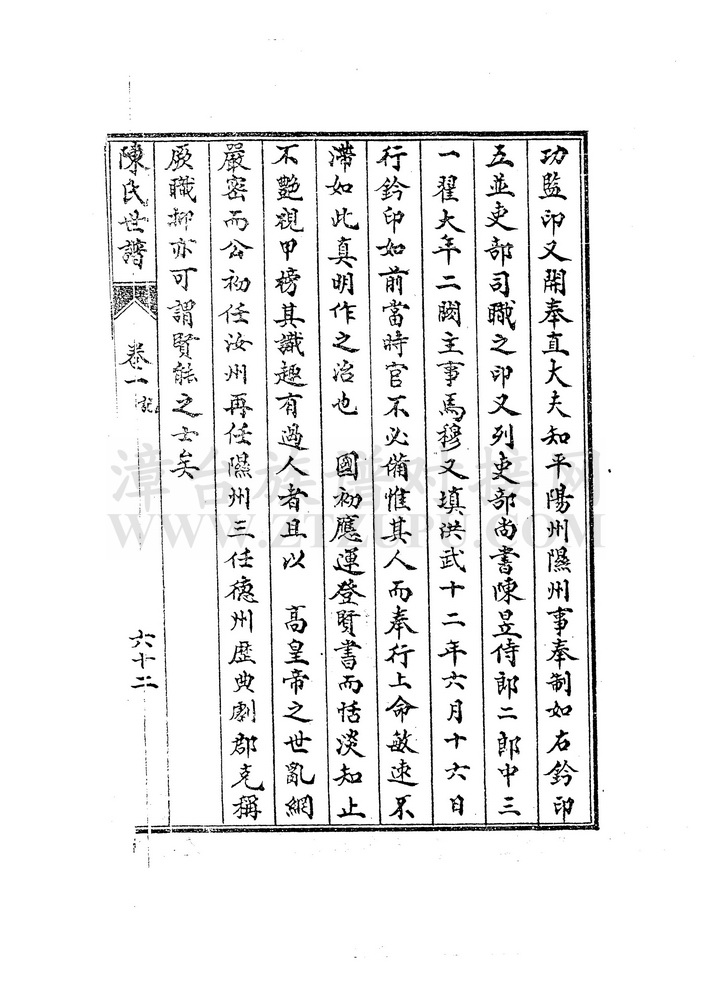 功監印又開奉直大夫知平陽州隰州事奉制如右鈐印
五並吏部司職之印又列吏部尚書陳昱侍郎二郎中三
一翟大年二闕主事馬穆又填洪武十二年六月十六日
行鈐印如前當時官不必備惟其人而奉行上命敏速不
滯如此真明作之治也 國初應運登賢書而恬淡知止
不艷視甲榜其識趣有過人者且以 高皇帝之世亂網
嚴密而公初任汝州再任隰州三任德州歷典劇郡克稱
厥職抑亦可謂賢能之士矣
陳氏世譜 卷一 記 六十二
漳台族谱对接网
WWW.ZTZUPU.COM